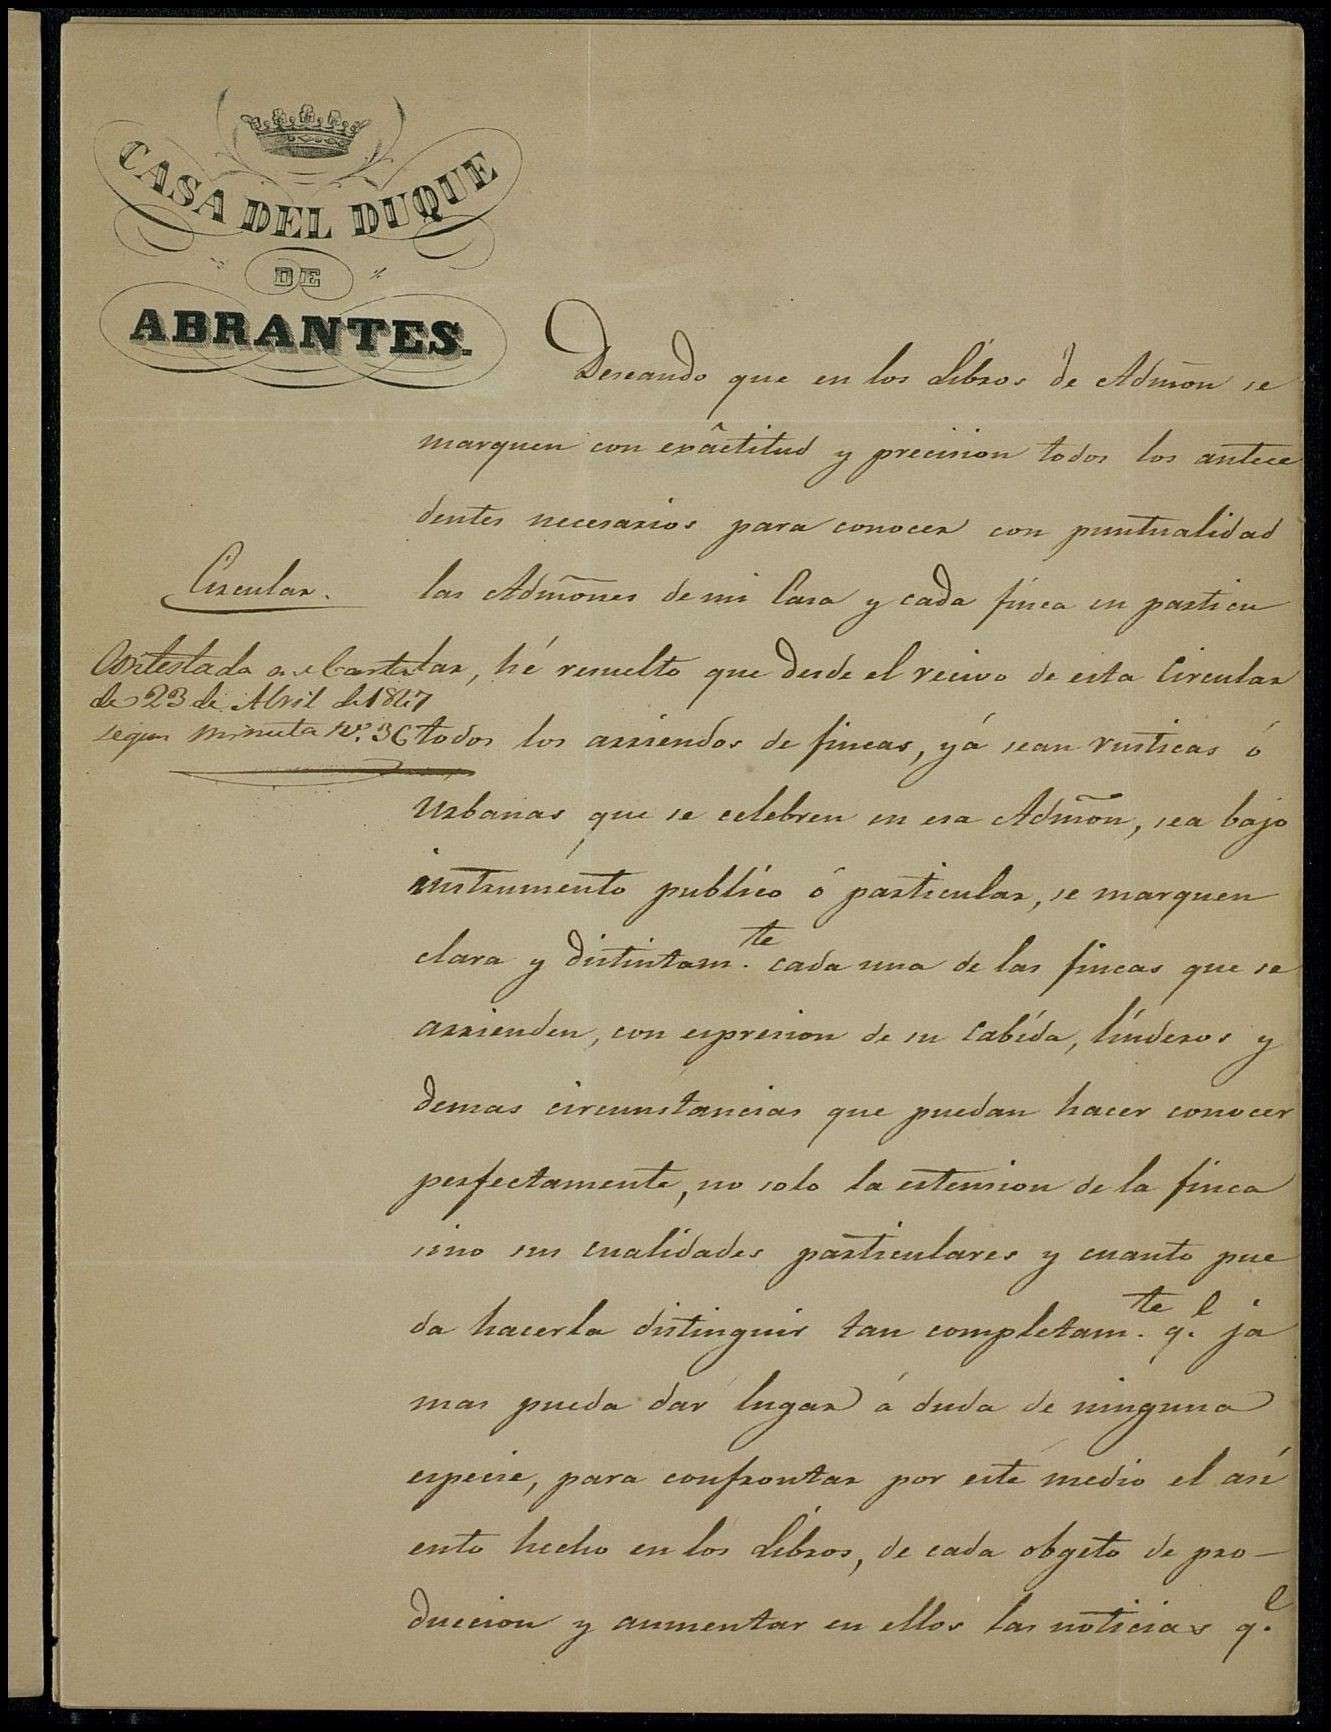 CASA DEL DUQUE
DE
ABRANTES.
Deseando que en los Libros de Admõn se
marquen con exâctitud y precision todos los antece
dentes necesarios para conocer con puntualidad
Circular.
las Admõnes de mi Casa y cada finca en particu
lar, hé resuelto que desde el recivo de esta Circular
Contestada en Carta
de 23 de Abril de 1847
segun minuta nº. 36
todos los arriendos de fincas, yá sean rusticas ó
Urbanas, que se celebren en esa Admõn, sea bajo
instrumento publico ó particular, se marquen
clara y distintam.te cada una de las fincas que se
arrienden, con espresion de su Cabída, línderos y
demas circunstancias que puedan hacer conocer
perfectamente, no solo la estension de la finca
sino sus cualidades particulares y cuanto pue
da hacerla distinguir tan completam.te q.e ja
mas pueda dar lugar á duda de ninguna
especie, para confrontar por este medio el así
ento hecho en los Libros, de cada obgeto de pro-
duccion y aumentar en ellos las noticias q.e